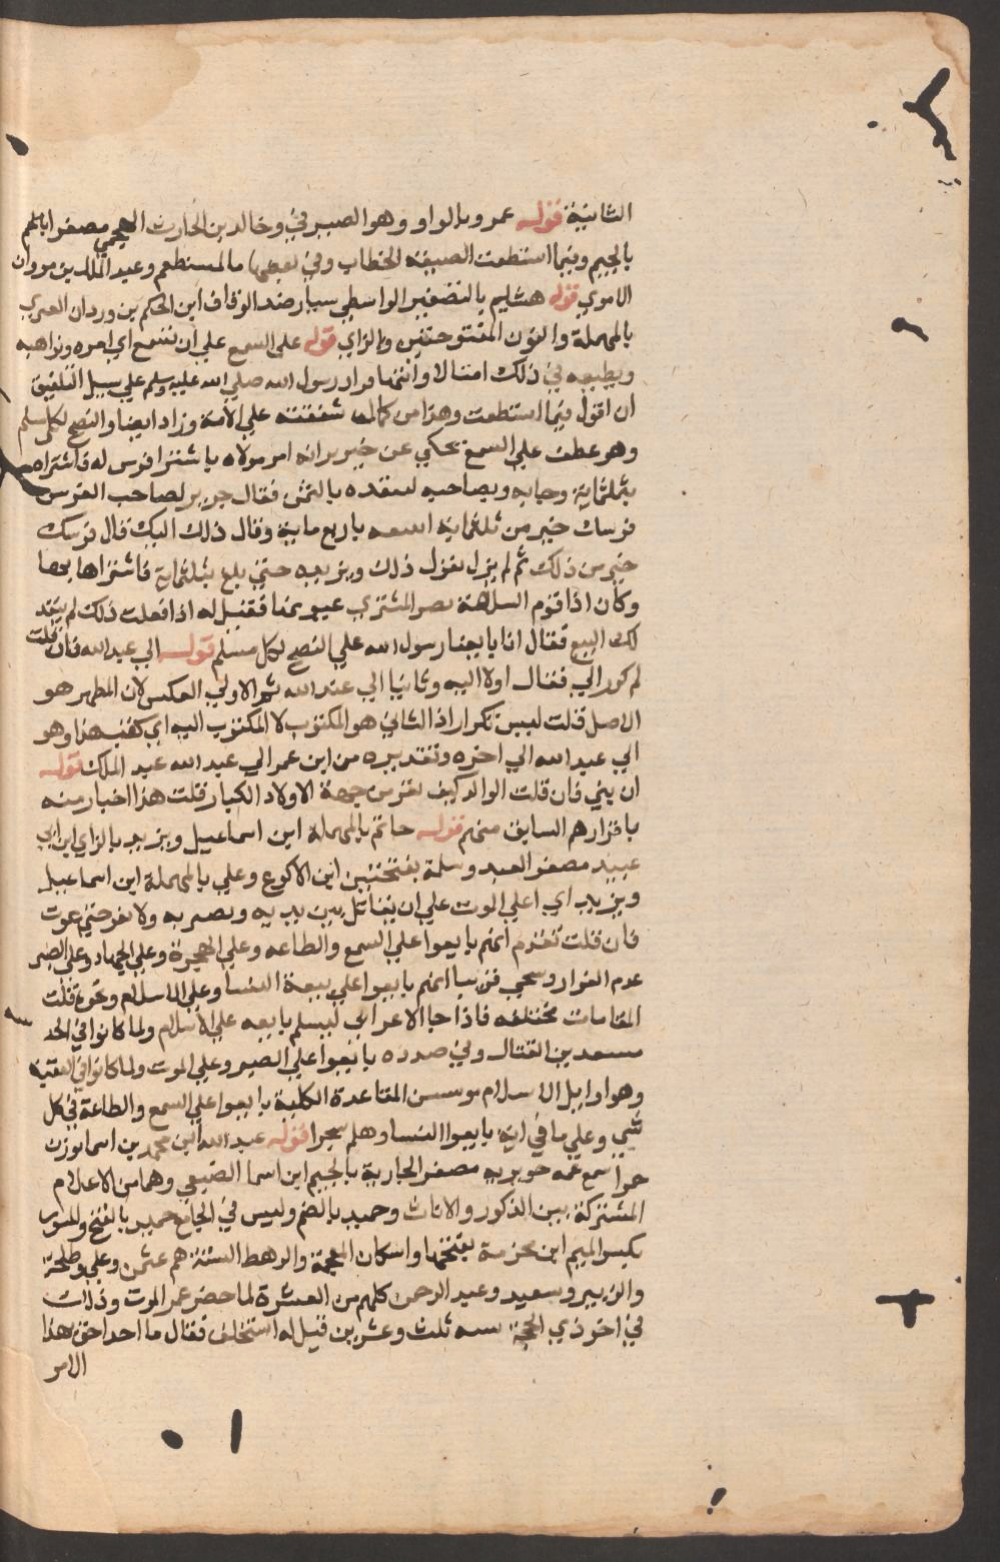 الثانية قوله عمرو بالواو وهو الصيرفي وخالد بن الحارث الهجيمي مصغرا بالهم
بالجيم وفيما استطعت الصيغة الخطاب وفي بعضها ما لمستطعم وعبد الملك بن مروان
الاموي قوله هشيم بالتصغير الواسطي سيار ضد الوقاف ابن الحكم بن وردان العنزي
بالمهملة والنون المفتوحتين وبالزاي قوله على السمع علي ان نسمع اي امره ونواهيه
ونطيعه في ذلك امتثالا وانتهاء وزاد رسول الله صلي الله عليه وسلم علي سبيل التلقين
ان اقول فيما استطعت وهذا من كمال شفقته علي الامة وزاد ايضا والنصح لكل مسلم
وهو عطف علي السمع يحكي عن جرير انه امر مولاه باشترا فرس له فاشتراه
بثلثماية وجا به وبصاحبه لينقده بالثمن فقال جرير لصاحب الفرس
فرسك خير من ثلثماية اتبيعه باربع ماية وقال ذلك اليك قال فرسك
خير من ذلك ثم لم يزل يقول ذلك ويزيده حتي بلغ بثلثماية فاشتراها بها
وكان اذا قوم السلعة بصر المشتري عيوبها فقيل له اذا فعلت ذلك لم ينفذ
لك البيع فقال انا بايعنا رسول الله علي النصح لكل مسلم قوله الي عبد الله فان قلت
لم كرر الي فقال اولا اليه وثانيا الي عبد الله ثم الاولي العكس لان المظهر هو
الاصل قلت ليس تكرار اذ الثاني هو المكتوب لا المكتوب اليه اي كتب هذا وهو
الي عبد الله الي اخره وتقديره من ابن عمر الي عبد الله عبد الملك قوله
ان بني فان قلت الوالد كيف يقر من جهة الاولاد الكبار قلت هذا اخبار منه
باقرارهم السابق منهم قوله حاتم بالمهملة ابن اسماعيل ويزيد بالزاي ابن ابي
عبيد مصغر العبد وسلمة بفتحتين ابن الاكوع وعلي بالمهملة ابن اسماعيل
ويزيد اي اعلي الموت علي ان نقاتل بين يديه ونصبر به ولا نفر حتي نموت
فان قلت تقدم انهم بايعوا علي السمع والطاعه وعلي الهجرة وعلي الجهاد وعلي الصبر
عدم الفرار وسيجي قريبا انهم بايعوا علي بيعة النسا وعلي الاسلام ونحوه قلت
المقامات مختلفه فاذا جا الاعرابي ليسلم بايعه علي الاسلام ولما كانوا في الحد
مستعدين القتال وفي صدده بايعوا علي الصبر وعلي الموت ولما كانوا في العقبة
وهو اوايل الاسلام موسسن القاعدة الكلية بايعوا علي السمع والطاعة في كل
شي وعلي ما في اية بايعوا النسا وهلم جرا قوله عبد الله ابن محمد بن اسما بوزن
حمرا سمع عمه جويرية مصغر الجارية بالجيم ابن اسما الضبعي وهما من الاعلام
المشتركة بين الذكور والاناث وحميد بالضم وليس في الجامع حميد بالفتح والمسور
بكسر الميم ابن مخرمة بفتحها واسكان المعجمة والرهط الستة هم عثمن وعلي وطلحة
والزبير وسعيد وعبد الرحمن كلهم من العشرة لما حضر عمر الموت وذلك
في اخر ذي الحجة سنه ثلث وعشرين قيل له استخلف فقال ما احد احق بهذا
الامر